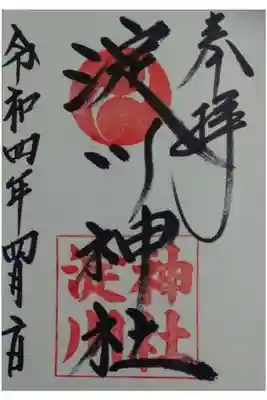 奉拝
淀川神社
淀川神社
令和四年四月日